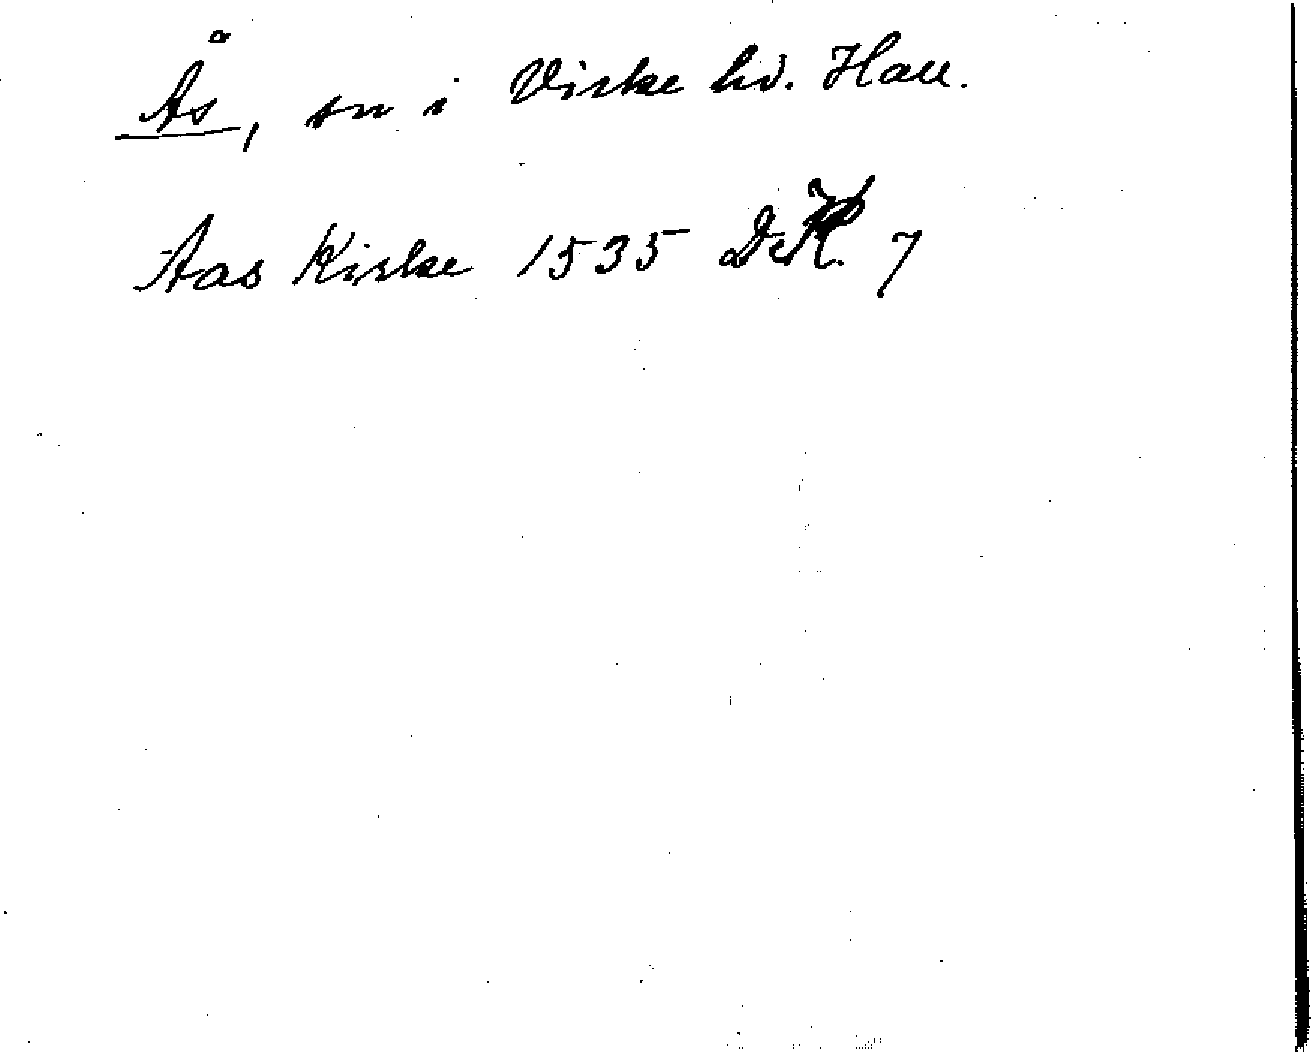 Ås, sn i Viske hd. Hall.
Aas Kirke 1535 DK. 7